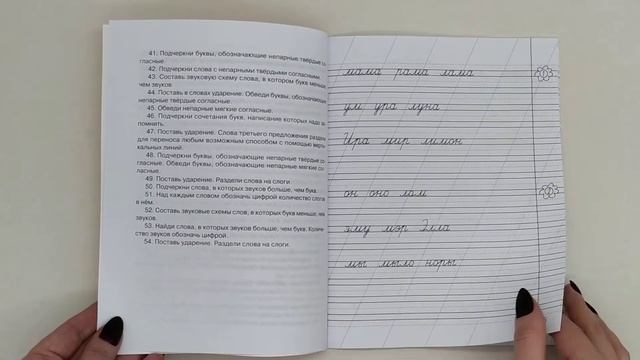 41. Подчеркни буквы, обозначающие непарные твёрдые со-
гласные.
42. Подчеркни слова с непарными твёрдыми согласными.
43. Составь звуковую схему слова, в котором букв меньше,
чем звуков.
44. Поставь в словах ударение. Обведи буквы, обозначающие
непарные твёрдые согласные.
45. Обведи непарные мягкие согласные.
46. Подчеркни сочетания букв, написание которых надо за-
помнить.
47. Поставь ударение. Слова третьего предложения раздели
для переноса любым возможным способом с помощью верти-
кальных линий.
48. Подчеркни буквы, обозначающие непарные твёрдые со-
гласные. Обведи буквы, обозначающие непарные мягкие со-
гласные.
49. Поставь ударение. Раздели слова на слоги.
50. Подчеркни слова, в которых звуков больше, чем букв.
51. Над каждым словом обозначь цифрой количество слогов
в нём.
52. Составь звуковые схемы слов, в которых букв меньше, чем
звуков.
53. Найди слова, в которых звуков больше, чем букв. Количе-
ство звуков обозначь цифрой.
54. Поставь ударение. Раздели слова на слоги.
мама рама лама
1
ум ура луна
Ира мир лимон
он оно лом
2
эму мэр Элла
мы мыло норы